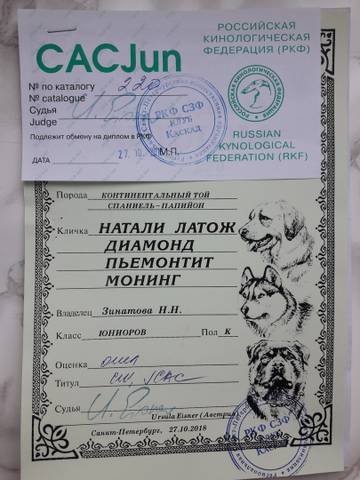 CACJun
РОССИЙСКАЯ
КИНОЛОГИЧЕСКАЯ
ФЕДЕРАЦИЯ (РКФ)
№ по каталогу 220
№ catalogue
Судья
Judge
Подлежит обмену на диплом в РКФ
ДАТА 27.10. М.П.
РКФ СЗФ
КЛУБ
Каскад
RUSSIAN
KYNOLOGICAL
FEDERATION (RKF)
Порода КОНТИНЕНТАЛЬНЫЙ ТОЙ
СПАНИЕЛЬ-ПАПИЙОН
Кличка НАТАЛИ ЛАТОЖ
ДИАМОНД
ПЬЕМОНТИТ
МОНИНГ
Владелец Зинатова Н.Н.
Класс ЮНИОРОВ Пол К
Оценка отл
Титул CW, JCAC
Судья
Ursula Eisner (Австрия)
Санкт-Петербург, 27.10.2018
РКФ СЗФ
КЛУБ
Каскад